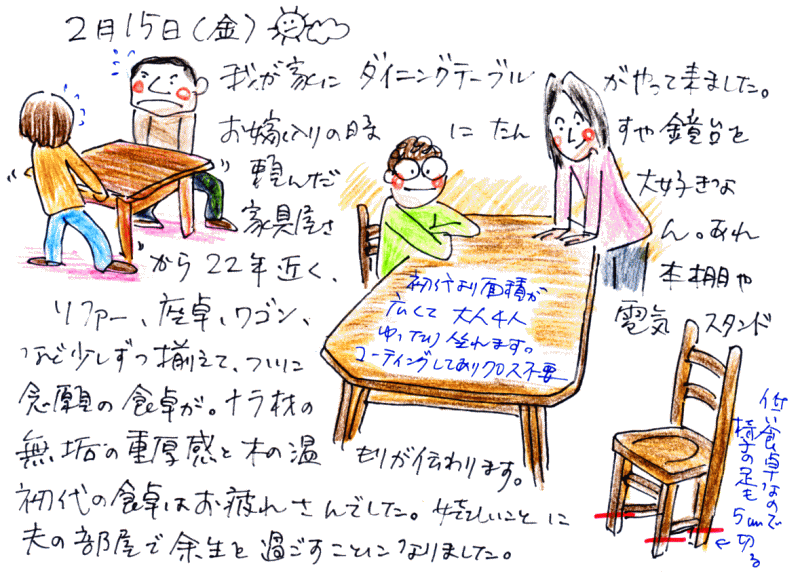 2月15日(金)
我が家に ダイニングテーブル がやって来ました。
お嫁入りの時 に たん すや鏡台を
頼んだ 大好きな
家具屋さ ん。あれ
から22年近く、 本棚や
ソファー、座卓、ワゴン、 電気 スタンド
など少しずつ揃えて、ついに
念願の食卓が。ナラ材の
無垢の重厚感と木の温 もりが伝わります。
初代の食卓はお疲れさんでした。嬉しいことに
夫の部屋で余生を過ごすことになりました。
初代より面積が
広くて 大人4人
ゆったり座れます。
コーティングしてありクロス不要
低い食卓なので
椅子の足も
5cm切る